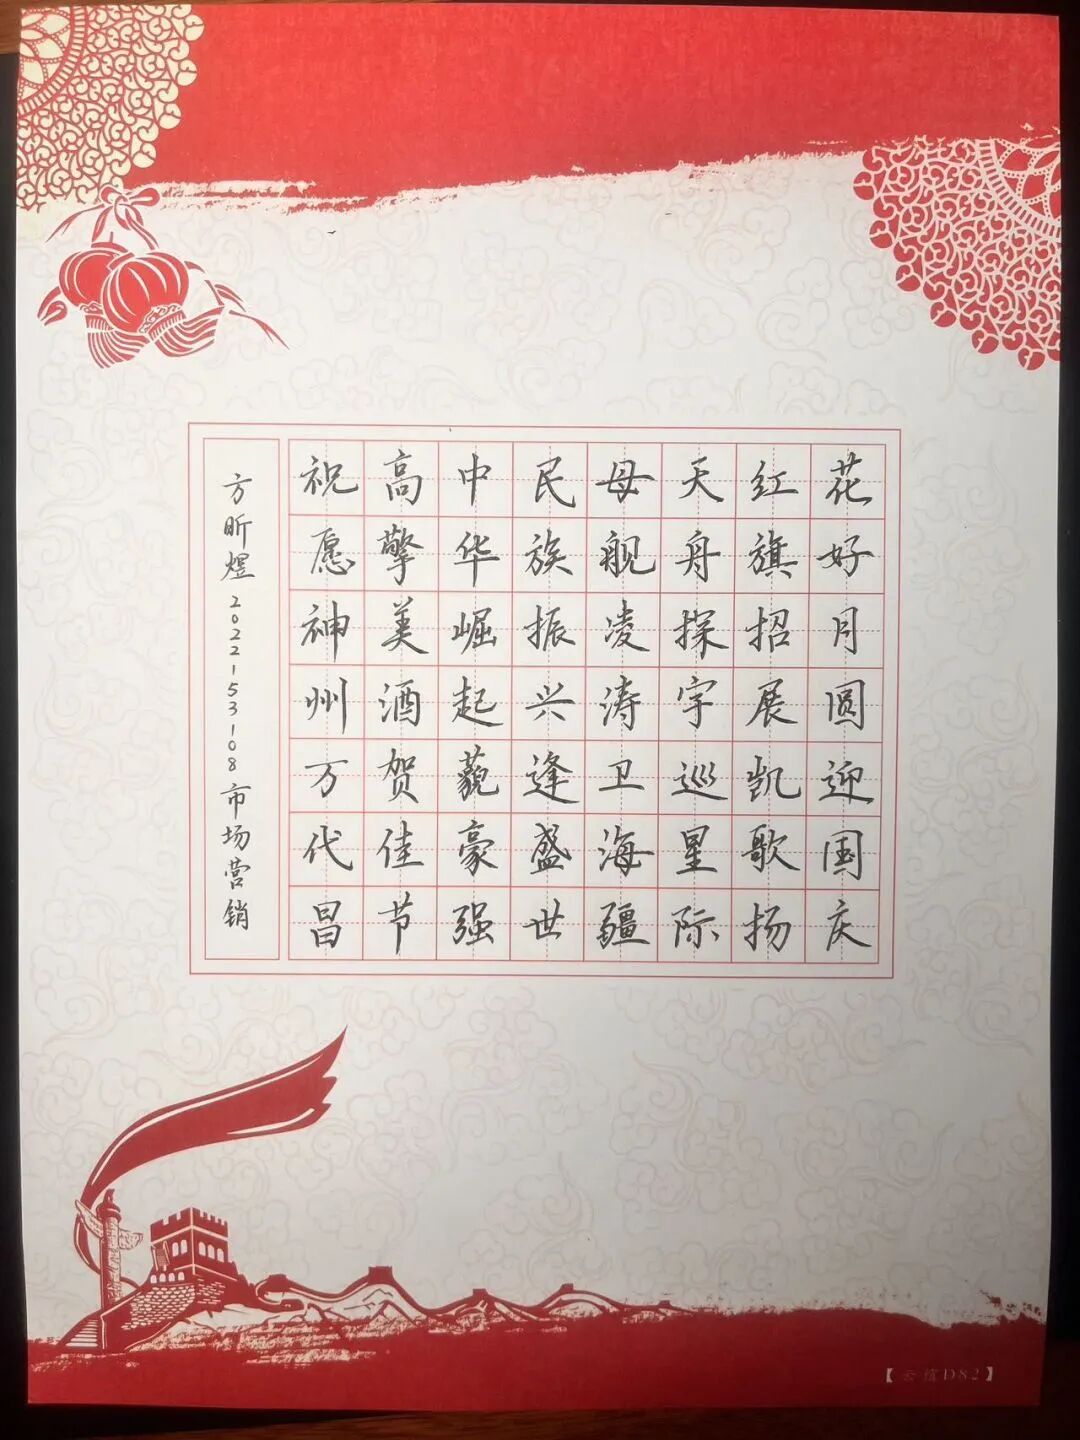 花好月圆迎国庆
红旗招展凯歌扬
天舟探宇巡星际
母舰凌涛卫海疆
民族振兴逢盛世
中华崛起藐豪强
高擎美酒贺佳节
祝愿神州万代昌
方昕煜2022153108市场营销
【云宣D82】